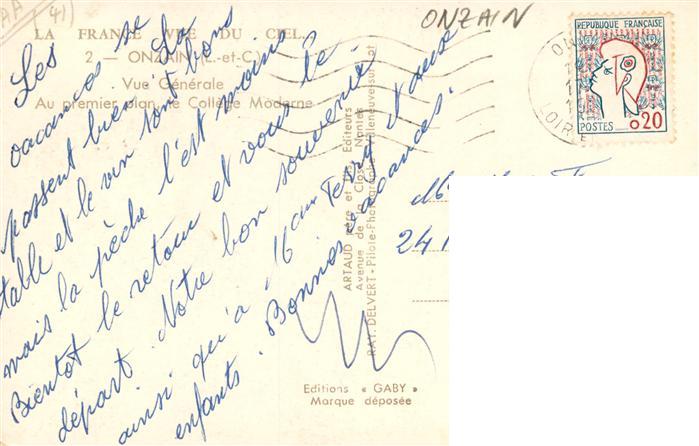 AA 41)
ONZAIN
LA FRANCE VUE DU CIEL...
2 - ONZAIN (L.-et-C.)
Vue Générale
Au premier plan, le Collège Moderne
REPUBLIQUE FRANÇAISE
POSTES 0,20
LOIR
Les vacances se
passent bien. La
table et le vin sont bons
mais la pêche l'est moins
Bientôt le retour et vous le
départ. Notre bon souvenir
ainsi qu'à
enfants. Bonnes vacances.
ARTAUD Père et Fils, Editeurs
Avenue de la Close Nantes
RAY. DELVERT - Pilote-Photographe Villeneuve-sur-Lot
24
Editions « GABY »
Marque déposée